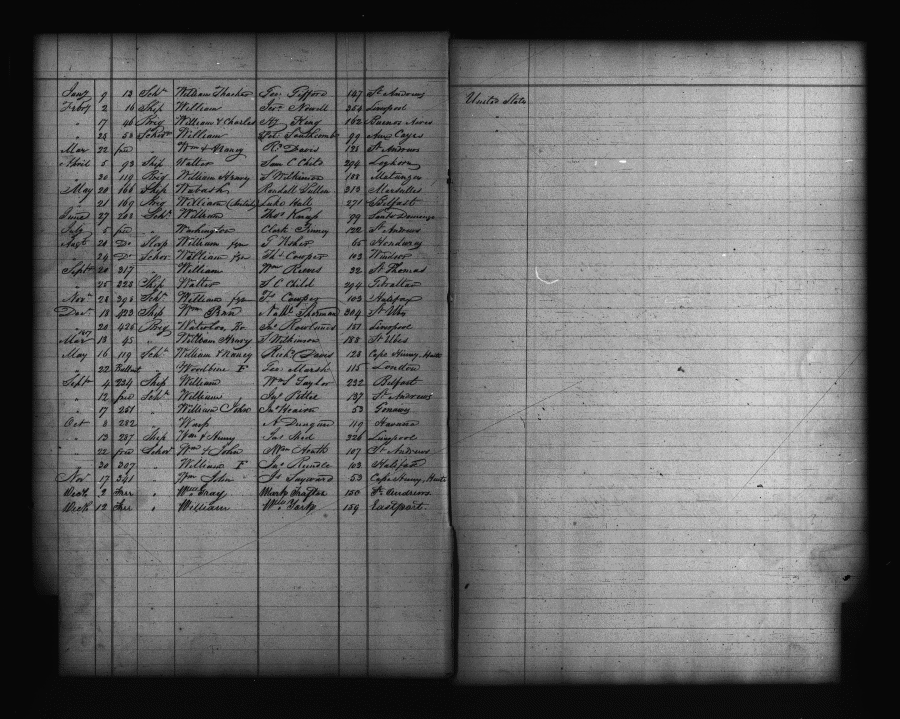 Jany 9 13 Schr William Thacher Jos. Gifford 147 St Andrews United States
Feby 2 16 Ship William Jos. Nowell 254 Liverpool
" 17 46 Brig William & Charles King 162 Buenos Ayres
" 28 58 Schor William Southcomb 99 Aux Cayes
Mar 22 free " Wm & Nancy Rd Davis 128 St Andrews
April 5 93 Ship Walter Sam C Child 294 Leghorn
" 20 119 Brig William Henry S Wilkinson 188 Matanzas
May 20 166 Ship Wabash Randall 213 Marseilles
" 21 169 Brig William Luke Hall 271 Belfast
June 27 208 Schr William Thos Knap 99 Santo Domingo
July 5 free " Washington Clark 122 St Andrews
Augt 20 Do Sloop William fgn T Usher 65 Honduras
" 24 Do Schor William fgn Ths Cowper 103 Windsor
Sept 20 317 " William Wm Reeves 32 St Thomas
" 25 223 Ship Walter S C Child 294 Gibraltar
Novr 28 398 Schr William fgn Ts Cowper 103 Halifax
Decr 18 423 Ship Wm Penn Nathl Sherman 304 St Ubes
" 20 426 Brig Waterloo, Br Jno Rowlands 151 Liverpool
1817
Mar 13 45 " William Henry S Wilkinson 188 St Ubes
May 16 119 Schr William & Nancy Richd Davis 128 Cape Henry, Haiti
" 22 Ballast " Woodbine F Geo Marsh 115 London
Sept 4 234 Ship William Wm S Taylor 232 Belfast
" 12 free Schr William Jno 137 St Andrews
" 17 251 " William John Jno 53 Gonaives
Oct 8 282 " Wasp A 119 Havana
" 13 287 Ship Wm & Henry Jas Shed 226 Liverpool
" 22 free Schor Wm & John Wm Heath 107 St Andrews
" 30 307 " William F Jno Rundle 103 Halifax
Nov 17 341 " Wm John Js Sayward 53 Cape Henry, Haiti
Decr 2 Free " Wm Gray Mark Trafton 150 St Andrews
Decr 12 Free " William Wm York 159 Eastport